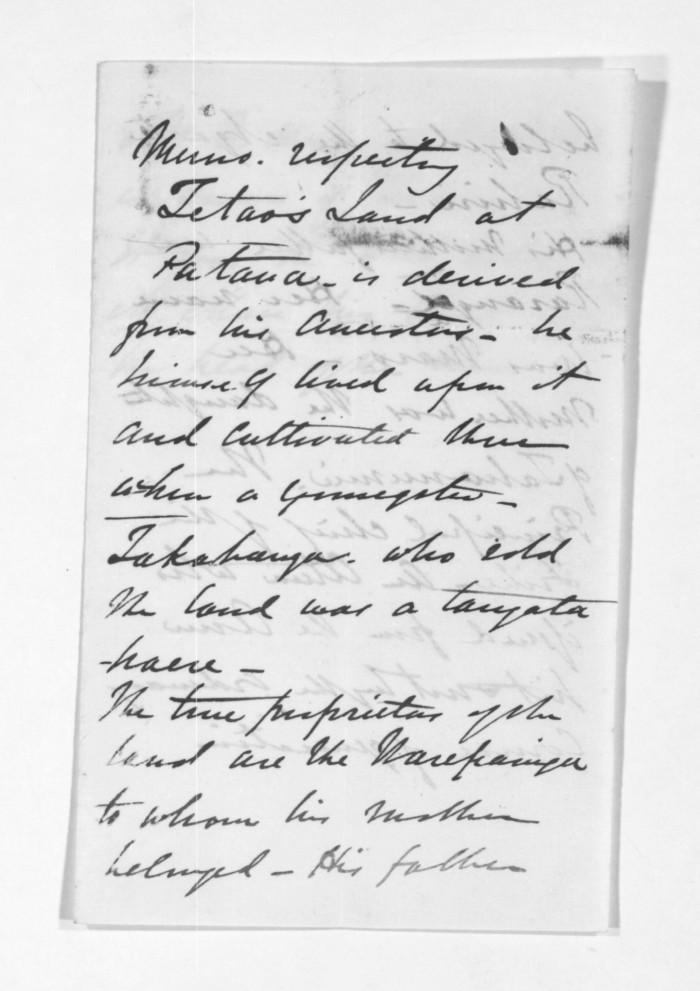 Memo. respecting
Tetao's Land at
Pataua - is derived
from his Ancestors - he
himself lived upon it
and cultivated there
when a youngster -
Takahanga. who sold
the land was a tangata
haere -
The true proprietors of the
land are the Warepainga
to whom his mother
belonged - His father